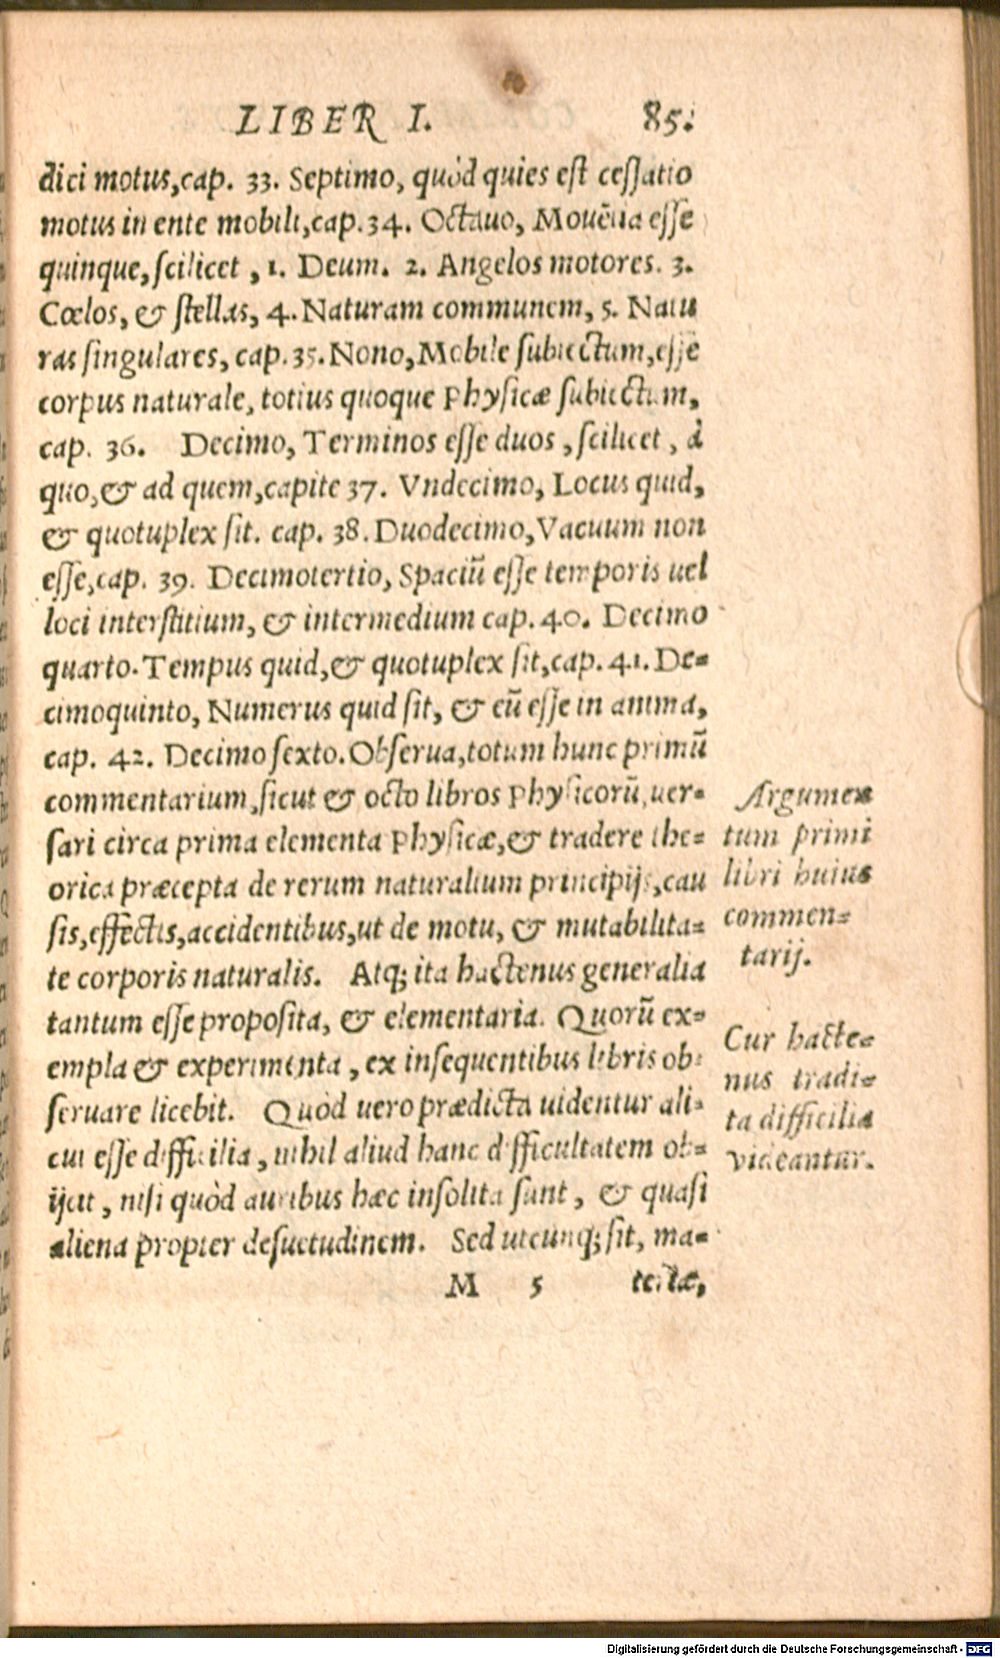 LIBER I. 85.
dici motus, cap. 33. Septimo, quòd quies est cessatio
motus in ente mobili, cap. 34. Octauo, Mouẽtia esse
quinque, scilicet, 1. Deum. 2. Angelos motores. 3.
Cœlos, & stellas, 4. Naturam communem, 5. Natu
ras singulares, cap. 35. Nono, Mobile subiectum, esse
corpus naturale, totius quoque Physicæ subiectum,
cap. 36. Decimo, Terminos esse duos, scilicet, à
quo, & ad quem, capite 37. Vndecimo, Locus quid,
& quotuplex sit. cap. 38. Duodecimo, Vacuum non
esse, cap. 39. Decimotertio, Spaciũ esse temporis uel
loci interstitium, & intermedium cap. 40. Decimo
quarto. Tempus quid, & quotuplex sit, cap. 41. De-
cimoquinto, Numerus quid sit, & eũ esse in anima,
cap. 42. Decimo sexto. Obserua, totum hunc primũ
commentarium, sicut & octo libros Physicorũ, uer-
sari circa prima elementa Physicæ, & tradere the-
orica præcepta de rerum naturalium principijs, cau
sis, effectis, accidentibus, ut de motu, & mutabilita-
te corporis naturalis. Atq; ita hactenus generalia
tantum esse proposita, & elementaria. Quorũ ex-
empla & experimenta, ex insequentibus libris ob-
seruare licebit. Quòd uero prædicta uidentur ali-
cui esse difficilia, nihil aliud hanc difficultatem ob-
ijcit, nisi quòd auribus hæc insolita sunt, & quasi
aliena propter desuetudinem. Sed utcunq; sit, ma-
M 5 teriæ,
Argumen
tum primi
libri huius
commen-
tarij.
Cur hacte-
nus tradi-
ta difficilia
videantur.
Digitalisierung gefördert durch die Deutsche Forschungsgemeinschaft - DFG